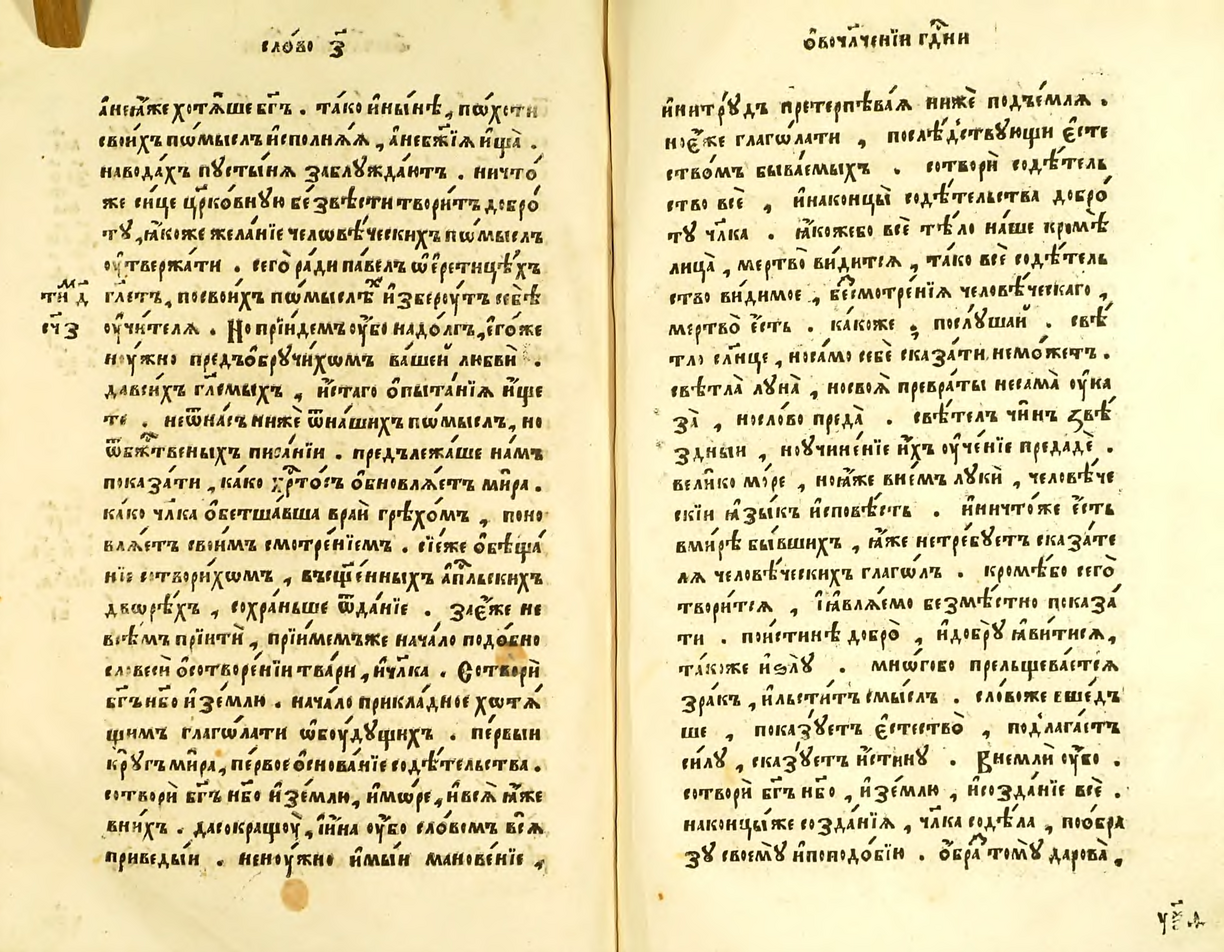 слово з҃
а҆неꙗ҆́же хотѧ́ше бг҃ъ . та́ко и҆ны́нѣ , пѡ́хоти
свои́хъ пѡ́мыслъ и҆сполнѧ́ѧ , а҆небж҃їѧ и҆ща̀ .
наво́дахъ пꙋсты́нѧ заблꙋжда́ютъ . ничто́
же си́це цр҃ко́внꙋю безвѣ́сти твори́тъ добро́
тꙋ , ꙗ҆́коже жела́нїе человѣ́ческихъ пѡ́мыслъ
оу҆твержа́ти . сего̀ ра́ди па́велъ ѡ҆ е҆ретицѣ́хъ
гл҃етъ , посвои́хъ пѡ́мыслѣⷯ и҆збероу́тъ себѣ̀
тиⷨ д҃
оу҆чи́телѧ . Но прїи́демъ оу҆̀бо надо́лгъ , е҆го́же
сч҃ з҃
ноу́жно предъѡбрꙋчи́хѡмъ ва́шей любвѝ .
давси́хъ гл҃емыхъ , и҆́стаго ѻ҆пыта́нїѧ и҆́ще
те . неѿна́съ ниже ѿна́шихъ пѡ́мыслъ , но
ѿбжⷭ҇твеныхъ писа́нїи . предълежа́ше на́мъ
показа́ти , ка́ко хрⷭ҇то́съ ѻ҆бновлѧ́етъ ми́ра .
ка́ко чл҃ка ѻ҆бетша́вша врай грѣхо́мъ , поно
влѧ́етъ свои́мъ смотре́нїемъ . сїе́же ѻ҆бѣща́
нїе сотвори́хѡмъ , въсщ҃е́нныхъ а҆пⷭ҇льскихъ
дво́рѣхъ , сохра́ньше ѿда́нїе . зае҆́же не
всѣ́мъ прїитѝ , прїи́мемъже нача́ло подо́бно
словесѝ ѻ҆сотворе́нїи тва́ри , и҆чл҃ка . Сотворѝ
бг҃ъ нб҃о и҆зе́млю . нача́ло прикла́дное хотѧ́
щимъ глаго́лати ѡ҆боу́дꙋщихъ . пе́рвыи
крꙋ́гъ ми́ра , пе́рвое ѻ҆снова́нїе содѣ́тельства .
сотворѝ бг҃ъ нб҃о и҆зе́млю , и҆мо́ре , и҆всѧ̀ ꙗ҆́же
вни́хъ . дасокращоу̀ , і҆и҆́на оу҆́бо сло́вомъ всѧ̀
приведы́и . неноу́жно и҆мы́и манове́нїе ,
ѻ҆бочл҃ченїи гдⷭ҇ни
и҆нитрꙋ́дъ претерпѣва́ѧ ниже́ подъе́млѧ .
ное҆́же глаго́лати , послѣ́дствꙋющи є҆сте
ство́мъ быва́емыхъ . сотворѝ содѣ́тель
ство всѐ , и҆наконцы̀ содѣ́тельства добро́
тꙋ чл҃ка . ꙗ҆́кожебо всѐ тѣ́ло на́ше кромѣ̀
лица̀ , ме́ртво ви́дитсѧ , та́ко всѐ содѣ́тель
ство ви́димое , бесмотре́нїѧ человѣ́ческаго ,
мертво̀ є҆́сть . ка́коже , послꙋ́шай . свѣ́
тло сл҃нце , носа́мо себѐ сказа́ти неможе́тъ .
свѣтла̀ лꙋна̀ , носвоѧ̀ превра́ты несама̀ оу҆ка
за̀ , носло́во преда̀ . свѣ́телъ чи́нъ ѕвѣ́
здныи , ноучине́нїе и҆́хъ оу҆че́нїе предадѐ .
вели́ко мо́ре , ноꙗ҆́же вне́мъ лꙋкѝ , человѣ́че
скїи ꙗ҆зы́къ и҆сповѣ́сть . и҆ничто́же є҆́сть
вми́рѣ бы́вшихъ , ꙗ҆́же нетре́бꙋетъ сказа́те
лѧ человѣ́ческихъ глаго́лъ . кромѣ́бо сего̀
твори́тсѧ , і҆ꙗ҆влѧ́емо безмѣ́стно показа́
ти . пои́стинѣ добро̀ , и҆добрꙋ̀ ꙗ҆ви́тисѧ ,
та́коже и҆ѕлꙋ̀ . мно́гобо прельщева́етсѧ
зра́къ , и҆льсти́тъ смы́слъ . сло́воже вше́дъ
ше , показꙋ́етъ є҆стество̀ , подлага́етъ
си́лꙋ , сказꙋ́етъ и҆́стинꙋ . Внемлѝ оу҆́бо .
сотворѝ бг҃ъ нб҃о , и҆зе́млю , и҆созда́нїе всѐ .
наконцы́же созда́нїѧ , чл҃ка содѣ́ла , пообра
зꙋ своемꙋ̀ и҆поподо́бїю . ѻ҆́браⷥ томꙋ̀ дарова̀ ,